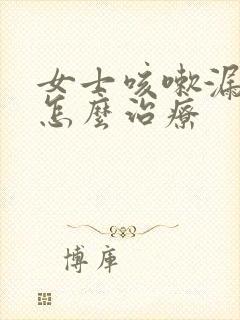 女士咳嗽漏
怎麼治療
博庫